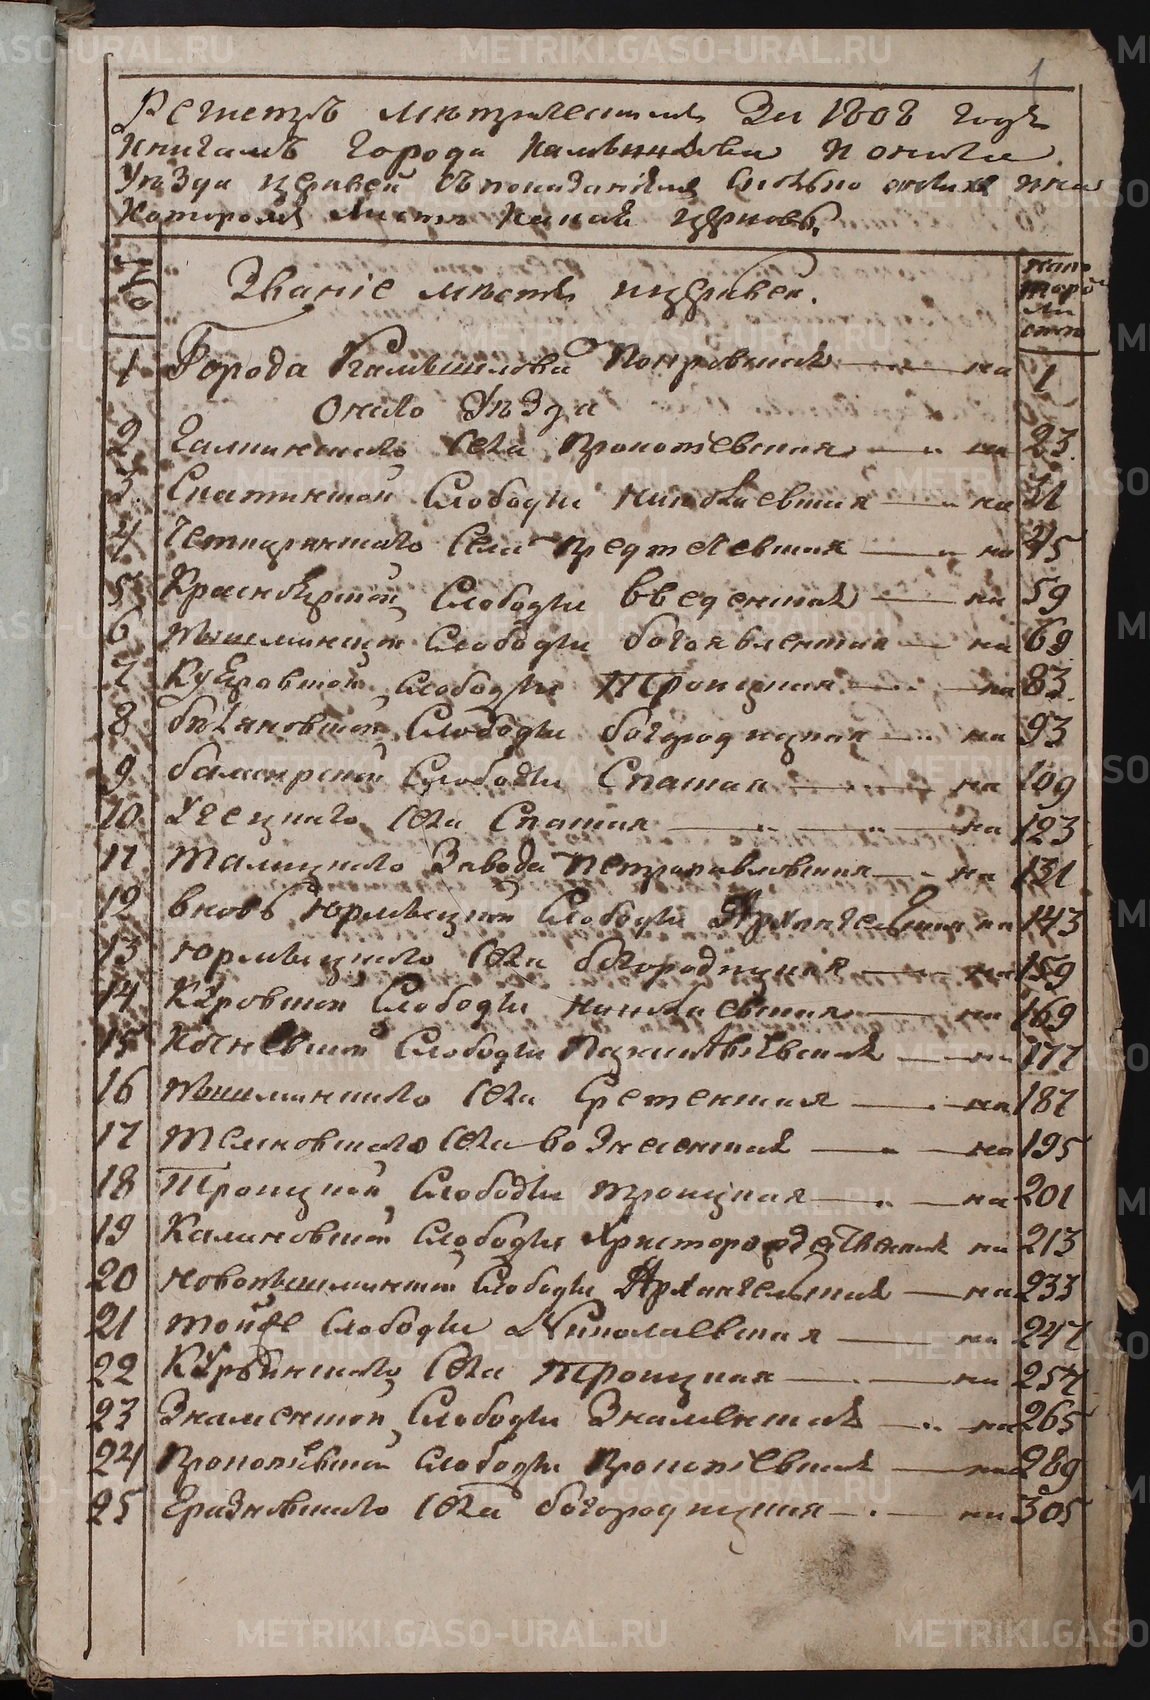 1
Регистръ метрическимъ За 1808 годъ
книгамъ города Камышлова и онаго
уѣзда церквей съ показаніемъ сколько оныхъ и на
которомъ листѣ какая церковь.
№
Званіе мѣстъ и церквей.
на которомъ листѣ
1 Города Камышлова Покровская на 1
Онаго уѣзда
2 Галкинскаго села Прокопіевская на 23.
3. Скатинской Слободы Николаевская на 31
4 Четкаринскаго села Предтечевская на 45
5 Красноярской Слободы Введенская на 59
6 Пышминской Слободы богоявленская на 69
7 Куяровской Слободы Троицкая на 83.
8 бѣляковской Слободы богородицкая на 93
9 балаирской Слободы Спаская на 109
10 Уецкаго села Спаская на 123
11 Талицкаго Завода Петропавловская на 131
12 вновь Юрмыцкой Слободы Архангельская на 143
13 Юрмыцкаго села богородицкая на 159
14 Кировской Слободы Николаевская на 169
15 Слободы на 177
16 Пышминскаго села Сретенская на 187
17 села вознесенская на 195
18 Троицкой Слободы троицкая на 201
19 Калиновской Слободы Христорождественская на 213
20 Новопышминской Слободы Архангельская на 233
21 той же Слободы Николаевская на 247
22 Курьинскаго села Троицкая на 257
23 Знаменской Слободы Знаменская на 265
24 Прокопіевской Слободы Прокопіевская на 289
25 Ерзовскаго села богородицкая на 305
METRIKI.GASO-URAL.RU